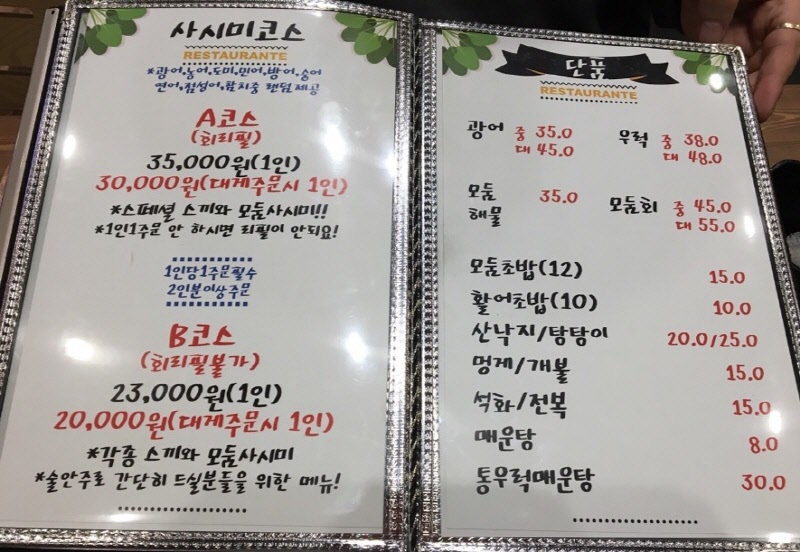 사시미코스
RESTAURANTE
*광어,농어,도미,민어,방어,숭어
연어,점성어,참치중 랜덤제공
A코스
(회리필)
35,000원(1인)
30,000원(대게주문시 1인)
*스페셜 스끼와 모듬사시미!!
*1인1주문 안 하시면 리필이 안되요!
1인당1주문필수
2인분이상주문
B코스
(회리필불가)
23,000원(1인)
20,000원(대게주문시 1인)
*각종 스끼와 모듬사시미
*술안주로 간단히 드실분들을 위한 메뉴!
단품
RESTAURANTE
광어 중 35.0
대 45.0
우럭 중 38.0
대 48.0
모듬
해물 35.0
모듬회 중 45.0
대 55.0
모듬초밥(12) 15.0
활어초밥(10) 10.0
산낙지/탕탕이 20.0/25.0
멍게/개불 15.0
석화/전복 15.0
매운탕 8.0
통우럭매운탕 30.0